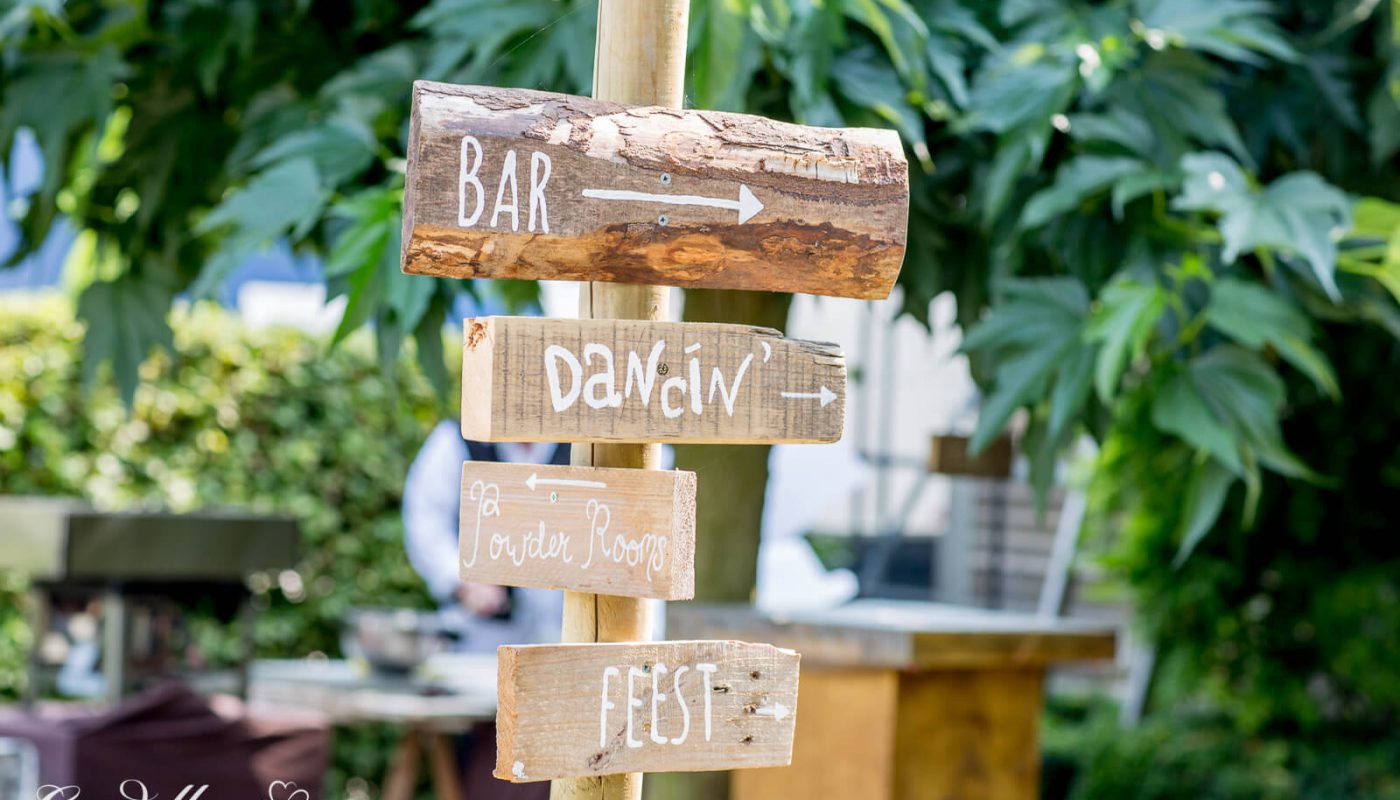 BAR
DaNciN'
Powder Rooms
FEEST